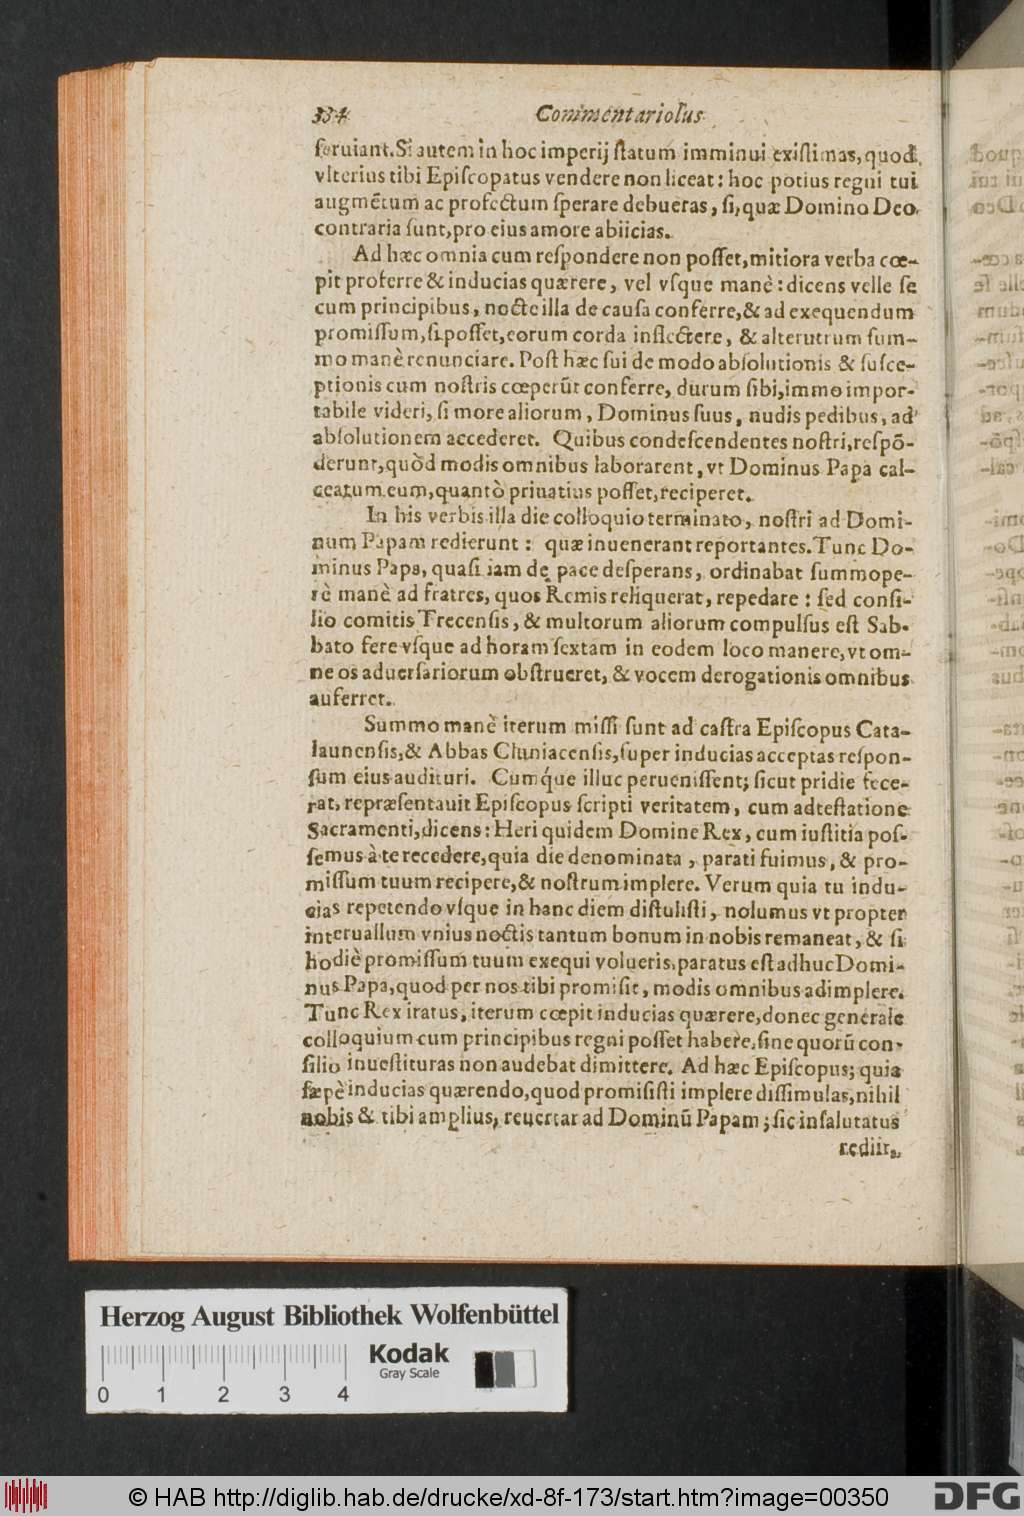 334 Commentariolus
ſeruiant. Si autem in hoc imperij ſtatum imminui exiſtimas, quod
vlterius tibi Epiſcopatus vendere non liceat: hoc potius regni tui
augmẽtum ac profectum ſperare debueras, ſi, quæ Domino Deo
contraria ſunt, pro eius amore abiicias.
Ad hæc omnia cum reſpondere non poſſet, mitiora verba cœ-
pit proferre & inducias quærere, vel vſque manè: dicens velle ſe
cum principibus, nocte illa de cauſa conferre, & ad exequendum
promiſſum, ſi poſſet, eorum corda inflectere, & alterutrum ſum-
mo manè renunciare. Poſt hæc ſui de modo abſolutionis & ſuſce-
ptionis cum noſtris cœperũt conferre, durum ſibi, immo impor-
tabile videri, ſi more aliorum, Dominus ſuus, nudis pedibus, ad
abſolutionem accederet. Quibus condeſcendentes noſtri, reſpõ-
derunt, quòd modis omnibus laborarent, vt Dominus Papa cal-
ceatum eum, quantò priuatius poſſet, reciperet.
In his verbis illa die colloquio terminato, noſtri ad Domi-
num Papam redierunt: quæ inuenerant reportantes. Tunc Do-
minus Papa, quaſi iam de pace deſperans, ordinabat ſummope-
rè manè ad fratres, quos Remis reliquerat, repedare: ſed conſi-
lio comitis Trecenſis, & multorum aliorum compulſus eſt Sab-
bato fere vſque ad horam ſextam in eodem loco manere, vt om-
ne os aduerſariorum obſtrueret, & vocem derogationis omnibus
auferret.
Summo manè iterum miſſi ſunt ad caſtra Epiſcopus Cata-
launenſis, & Abbas Cluniacenſis, ſuper inducias acceptas reſpon-
ſum eius audituri. Cumq́ue illuc perueniſſent; ſicut pridie fece-
rat, repræſentauit Epiſcopus ſcripti veritatem, cum adteſtatione
Sacramenti, dicens: Heri quidem Domine Rex, cum iuſtitia poſ-
ſemus à te recedere, quia die denominata, parati fuimus, & pro-
miſſum tuum recipere, & noſtrum implere. Verum quia tu indu-
cias repetendo vſque in hanc diem diſtuliſti, nolumus vt propter
interuallum vnius noctis tantum bonum in nobis remaneat, & ſi
hodiè promiſſum tuum exequi volueris, paratus eſt adhuc Domi-
nus Papa, quod per nos tibi promiſit, modis omnibus adimplere.
Tunc Rex iratus, iterum cœpit inducias quærere, donec generale
colloquium cum principibus regni poſſet habere, ſine quorũ con-
ſilio inueſtituras non audebat dimittere. Ad hæc Epiſcopus; quia
ſæpè inducias quærendo, quod promiſiſti implere diſſimulas, nihil
nobis & tibi amplius, reuertar ad Dominũ Papam; ſic inſalutatus
rediit,
Herzog August Bibliothek Wolfenbüttel
Kodak
Gray Scale
0 1 2 3 4
© HAB http://diglib.hab.de/drucke/xd-8f-173/start.htm?image=00350
DFG